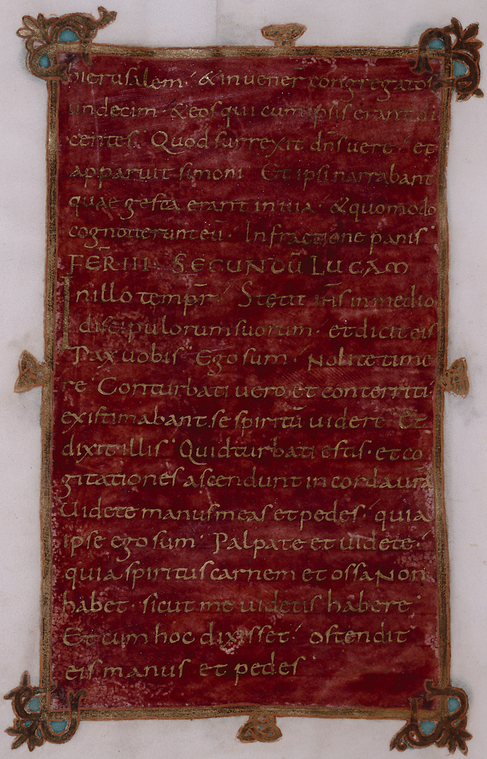 hierusalem · & invener congregatos
undecim · & eos qui cum ipsis erant di
centes · Quod surrexit dn̄s vere · et
apparuit simoni · Et ipsi narrabant
quae gesta erant in via · & quomodo
cognoverunt eū · In fractione panis
FER̄ III · SECUNDŪ LUCAM
In illo tempr̄ · Stetit ih̄s in medio
discipulorum suorum · et dicit eis
Pax vobis · Ego sum · Nolite time
re · Conturbati vero et conterriti
existimabant se spiritū videre · Et
dixit illis · Quid turbati estis · et co
gitationes ascendunt in corda vrā
Videte manus meas et pedes · quia
ipse ego sum · Palpate et videte ·
quia spiritus carnem et ossa non
habet · sicut me videtis habere
Et cum hoc dixisset · ostendit
eis manus et pedes